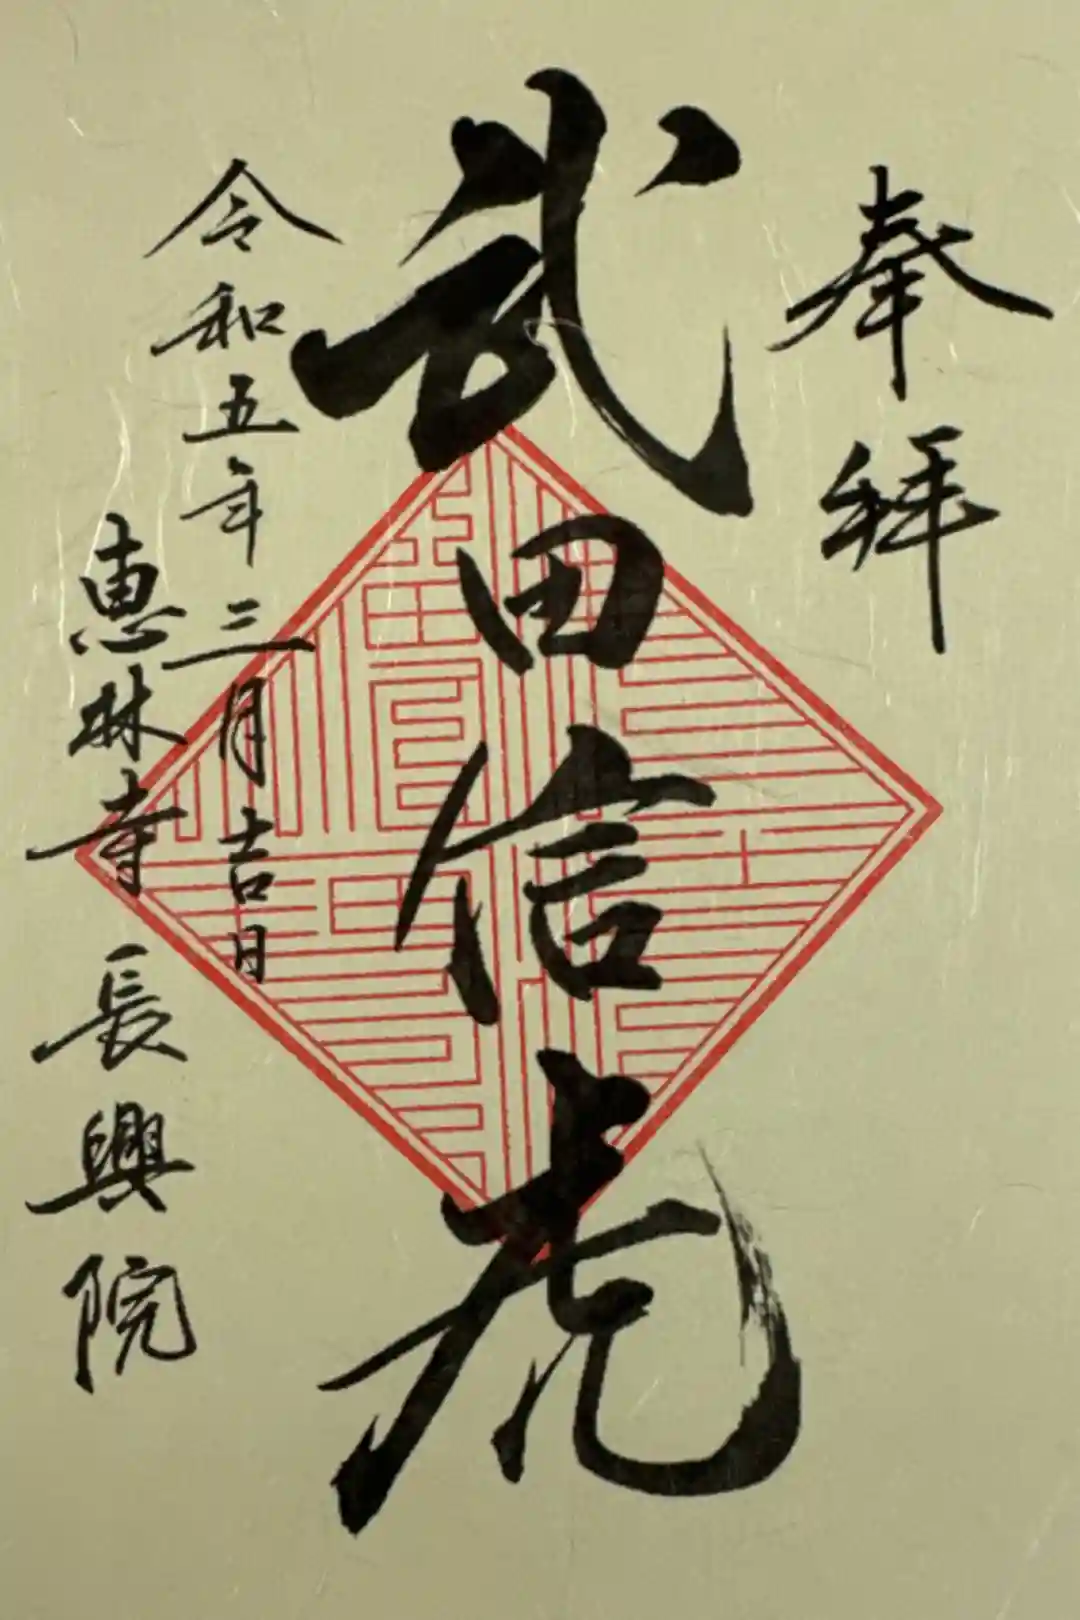 奉拝
武田信虎
令和五年三月吉日
恵林寺 長興院